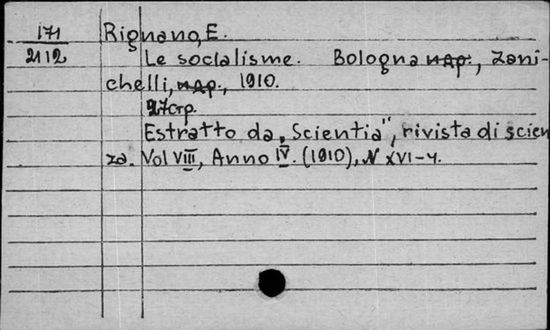 171 Rignano, E.
2112 Le socialisme. Bologna, Zani-
chelli, 1910.
27стр.
Estratto da „Scientia", rivista di scien
za. Vol VIII, Anno IV. (1910), N XVI-4.